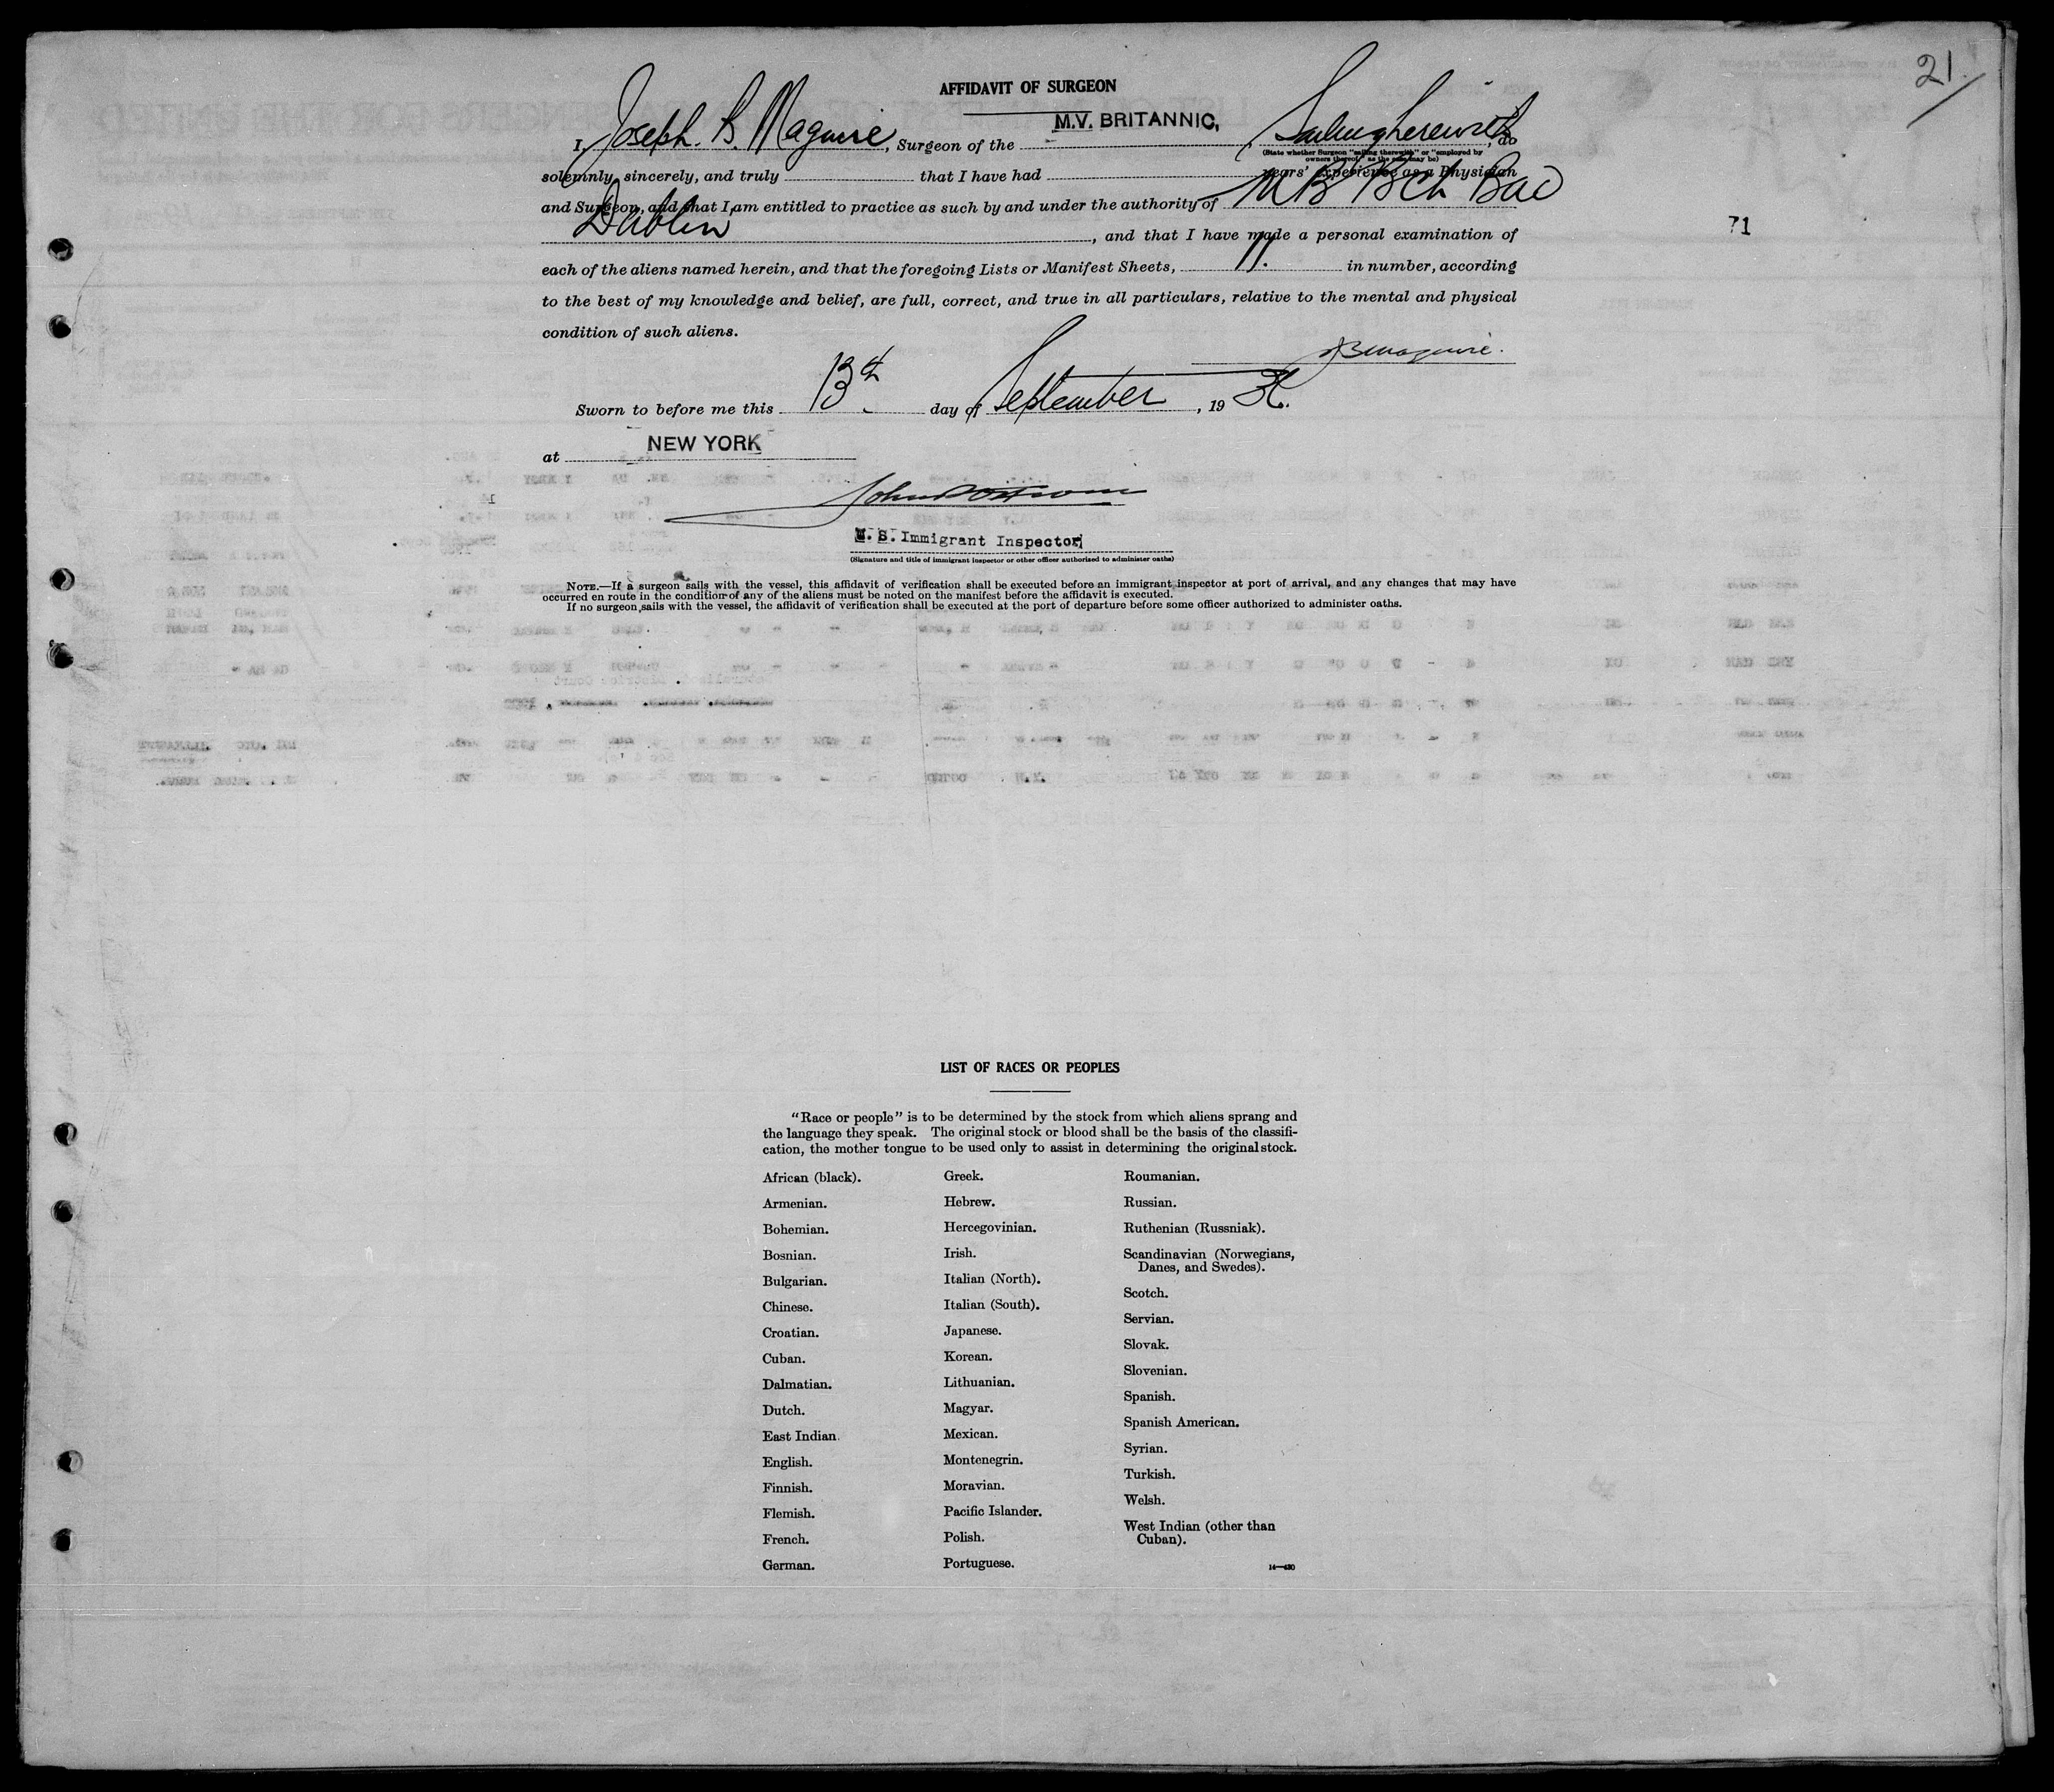 21.
AFFIDAVIT OF SURGEON
I, Joseph. B. Maguire, Surgeon of the M.V. BRITANNIC, Sailing therewith, do
(State whether Surgeon "sailing therewith" or "employed by
owners thereof," as the case may be)
solemnly, sincerely, and truly that I have had years' experience as a Physician
and Surgeon, and that I am entitled to practice as such by and under the authority of MB BCh BAO
Dublin, and that I have made a personal examination of
71
each of the aliens named herein, and that the foregoing Lists or Manifest Sheets, 11. in number, according
to the best of my knowledge and belief, are full, correct, and true in all particulars, relative to the mental and physical
condition of such aliens.
JBMaguire.
Sworn to before me this 13th day of September, 19
at NEW YORK
John
U. S. Immigrant Inspector
(Signature and title of immigrant inspector or other officer authorized to administer oaths)
NOTE.—If a surgeon sails with the vessel, this affidavit of verification shall be executed before an immigrant inspector at port of arrival, and any changes that may have
occurred en route in the condition of any of the aliens must be noted on the manifest before the affidavit is executed.
If no surgeon sails with the vessel, the affidavit of verification shall be executed at the port of departure before some officer authorized to administer oaths.
LIST OF RACES OR PEOPLES
"Race or people" is to be determined by the stock from which aliens sprang and
the language they speak. The original stock or blood shall be the basis of the classifi-
cation, the mother tongue to be used only to assist in determining the original stock.
African (black).
Armenian.
Bohemian.
Bosnian.
Bulgarian.
Chinese.
Croatian.
Cuban.
Dalmatian.
Dutch.
East Indian.
English.
Finnish.
Flemish.
French.
German.
Greek.
Hebrew.
Hercegovinian.
Irish.
Italian (North).
Italian (South).
Japanese.
Korean.
Lithuanian.
Magyar.
Mexican.
Montenegrin.
Moravian.
Pacific Islander.
Polish.
Portuguese.
Roumanian.
Russian.
Ruthenian (Russniak).
Scandinavian (Norwegians,
Danes, and Swedes).
Scotch.
Servian.
Slovak.
Slovenian.
Spanish.
Spanish American.
Syrian.
Turkish.
Welsh.
West Indian (other than
Cuban).
14—430